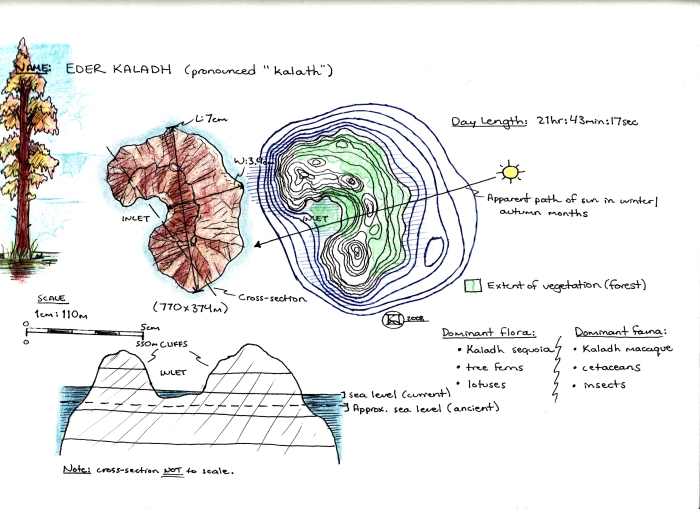 NAME: EDER KALADH (pronounced "kalath")
L: 7cm
Day Length: 21hr:43min:17sec
INLET
INLET
Apparent path of sun in winter/
autumn months
Cross-section
(770 x 374m)
Extent of vegetation (forest)
SCALE
1cm: 110m
0
0
5cm
2008
550m CLIFFS
INLET
Dominant flora:
• Kaladh sequoia
• tree ferns
• lotuses
Dominant fauna:
• Kaladh macaque
• cetaceans
• insects
sea level (current)
Approx. sea level (ancient)
Note: cross-section NOT to scale.